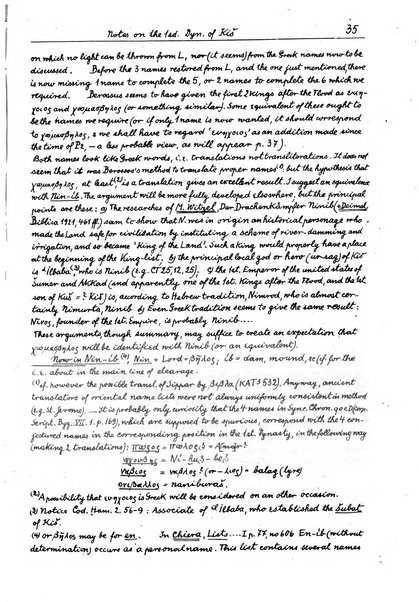 Notes on the 1st. Dyn. of Kiš 35
on which no light can be thrown from L, nor (it seems) from the Greek names now to be
discussed. Before the 3 names restored from L, and the one just mentioned, there
is now missing 1 name to complete the 5, or 2 names to complete the 6 which we
required. Berossus seems to have given the first 2 kings after the Flood as ευηχ-
οιος and χωμασβηλος (or something similar). Some equivalent of these ought to
be the names we require (or if only 1 name is now wanted, it should correspond
to χωμασβηλος, & we shall have to regard 'ευηχοιος' as an addition made since
the time of P2, – a less probable view, as will appear p. 37).
Both names look like Greek words, i.e. translations not transliterations. It does not
seem that it was Berossos's method to translate proper names(1), but the hypothesis that
χωμασβηλος, at least,(2) is a translation gives an excellent result. I suggest an equivalence
with Nin-ib. The argument will be more fully developed elsewhere, but the principal
points are these: a) The researches of M. Witzel, Der Drachenkämpfer Ninib (& Deimel,
Biblica 1921, 461 ff) seem to show that N. was in origin an historical personage who
made the Land safe for civilisation by instituting a scheme of river-damming and
irrigation, and so became 'King of the Land'. Such a king would properly have a place
at the beginning of the King-list, b) the principal local god or hero (ur-sag) of Kiš
is ᵈIlbaba(3), who is Ninib (e.g. CT 25, 12, 25). c) the 1st. Emperor of the united states of
Sumer and Akkad (and apparently one of the 1st. Kings after the Flood, and the 1st
son of Kuš = ? Kiš) is, according to Hebrew tradition, Nimrod, who is almost cer-
tainly Nimurta, Ninib d) Even Greek tradition seems to give the same result:
Νινος, founder of the 1st. Empire, is probably Ninib....
These arguments, though summary, may suffice to create an expectation that
χωμασβηλος will be identified with Ninib (or an equivalent).
Now in Nin-ib,(4) Nin = Lord = βῆλος; ib = dam, mound,
i.e. about in the main line of cleavage.
(1) cf. however the possible transl. of Sippar by βιβλα (KAT³ 532). Anyway, ancient
translators of oriental name lists were not always uniformly consistent in method
(e.g. St. Jerome). — It is probably only curiosity that the 4 names in Sync. Chron.
Script. Byz. VII. 1. p. 169), which are supposed to be spurious, correspond with the 4 con-
jectured names in the corresponding position in the 1st. Dynasty, in the following way
(making 2 translations):
(2) A possibility that ευηχοιος is Greek will be considered on an other occasion.
(3) Notice Cod. Ham. 2. 56-9: Associate of ᵈIlbaba, who established the Šubat
of Kiš.
(4) or βῆλος may be for en. In Chiera, Lists.... I p. 77, no 606 En-ib (without
determination) occurs as a personal name. This list contains several names